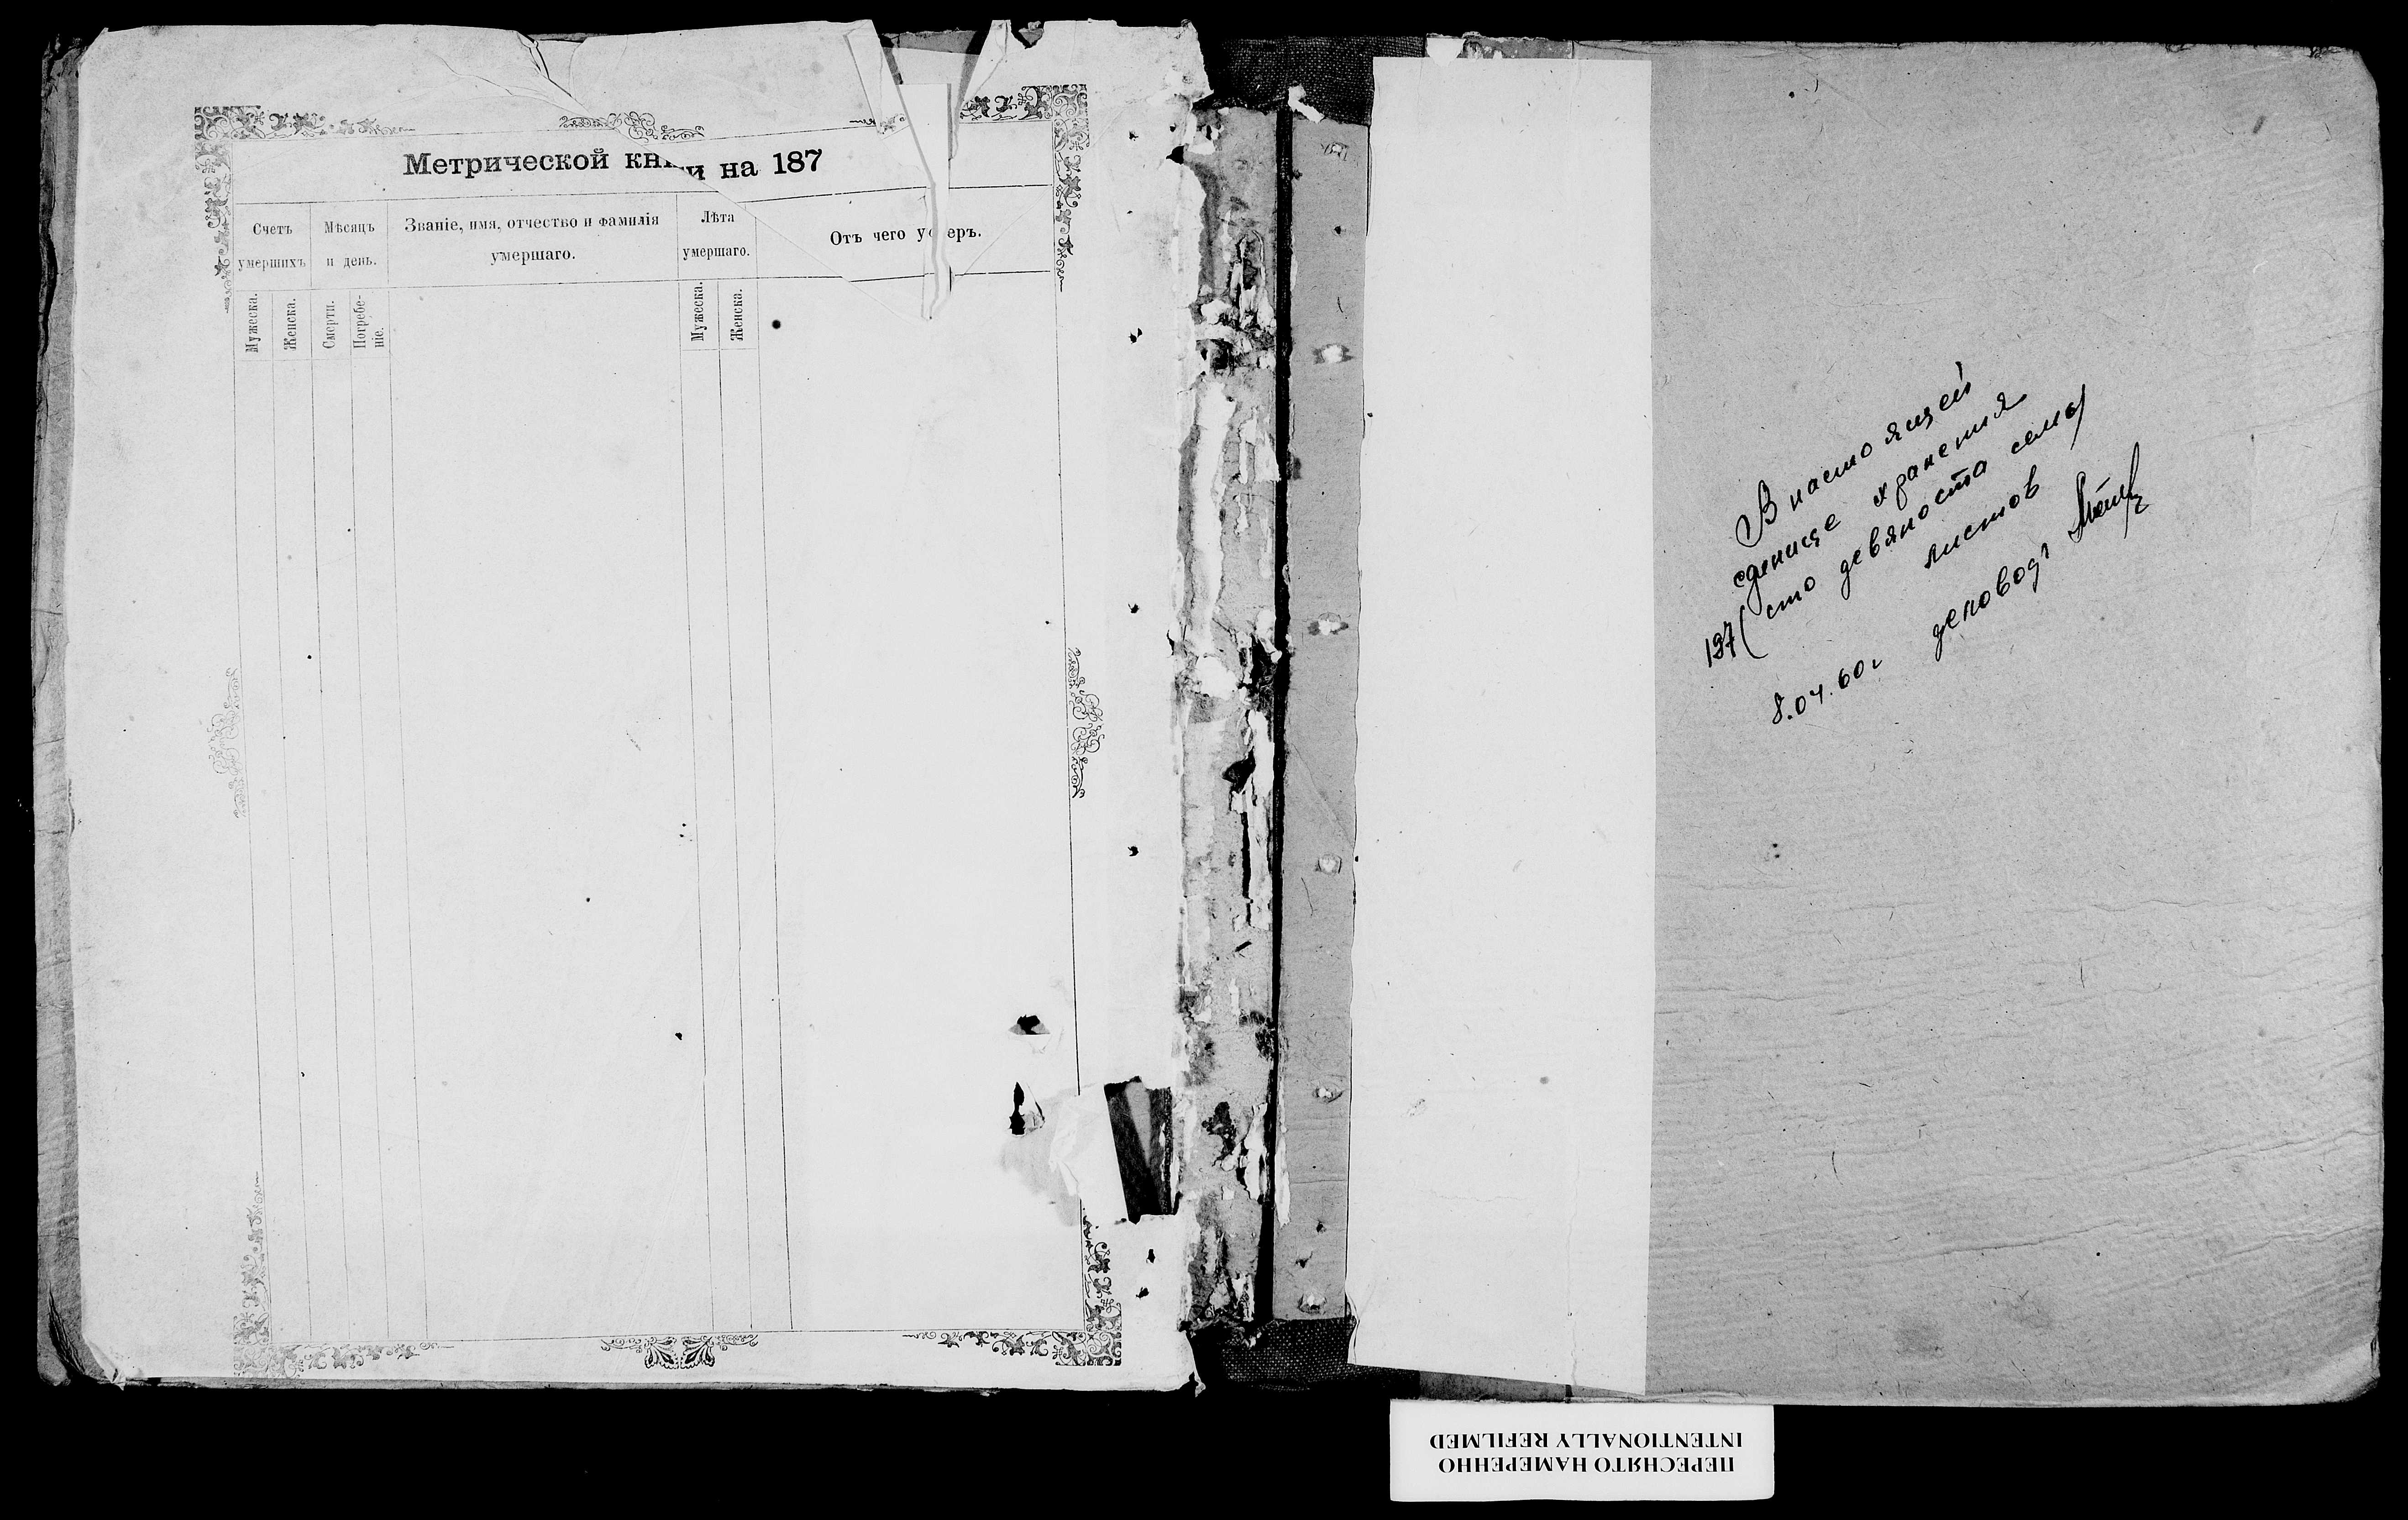 Метрической книги на 187
Счетъ умершихъ
Мѣсяцъ и день.
Званіе, имя, отчество и фамилія умершаго.
Лѣта умершаго.
Отъ чего умеръ.
Мужеска.
Женска.
Смерти.
Погребе-
ніе.
Мужеска.
Женска.
В настоящей
единице хранения
197 (сто девяноста семь)
листов
8.04.60г деловод
ПЕРЕСНЯТО НАМЕРЕННО
INTENTIONALLY REFILMED